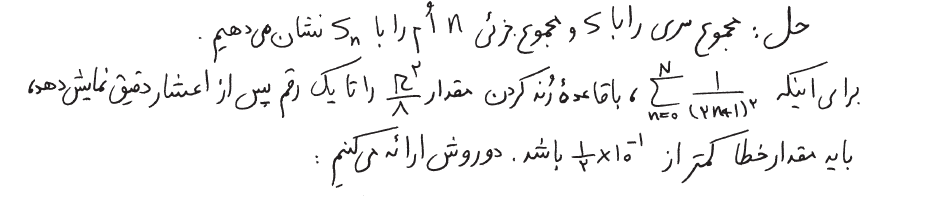 حل : مجموع سری را با S و مجموع جزئی n اُم را با Sₙ نشان می‌دهیم .
برای اینکه $\sum_{n=0}^{N} \frac{1}{(۲n+۱)^۲}$ ، با قاعدهٔ رُند کردن مقدار $\frac{\pi^۲}{۸}$ را تا یک رقم پس از اعشار دقیق نمایش دهد،
باید مقدار خطا کمتر از $\frac{۱}{۲} \times ۱۰^{-۱}$ باشد . دو روش ارائه می‌کنیم :